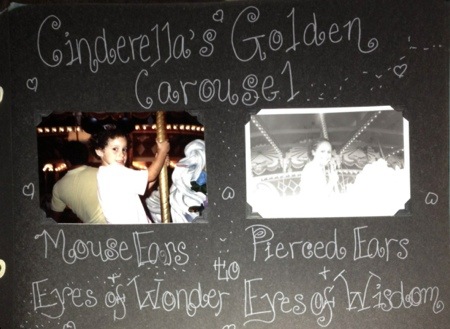 Cinderella's Golden
Carousel
Mouse Ears to Pierced Ears
+ +
Eyes of Wonder Eyes of Wisdom